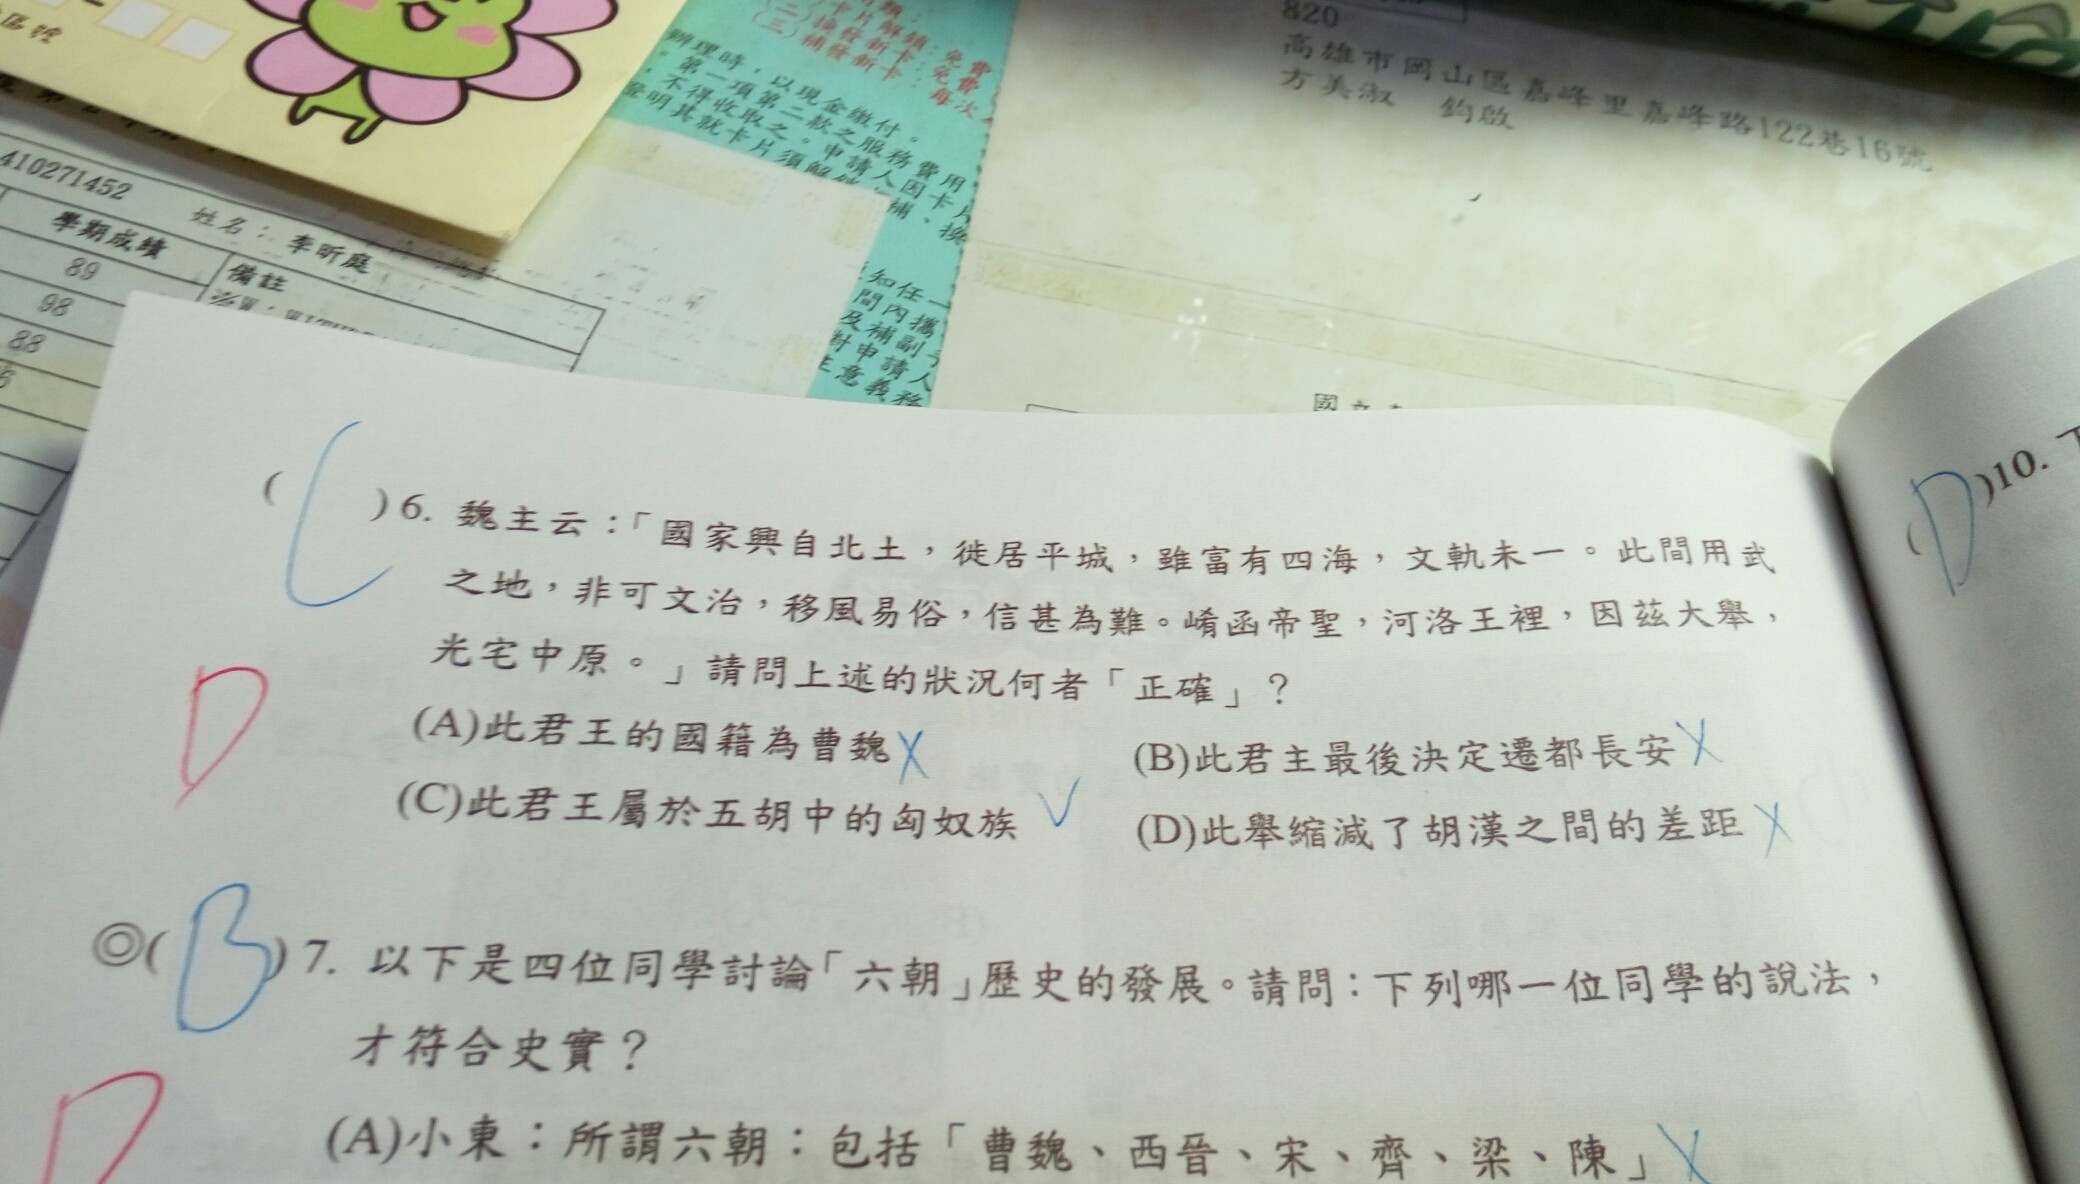 區號
卡片解鎖：免費
(二)換發新卡：免費
(三)補發新卡：每次
辦理時，以現金繳付。
第一項第二款之服務費用
，不得收取之。申請人因卡片
證明其就卡片須解鎖、補、換
知任一
間內攜
及補副
對申請人
生意義務
820
高雄市岡山區嘉峰里嘉峰路122巷16號
方美淑 鈞啟
國立
410271452
姓名：李昕庭
學期成績
備註
89
98
88
6
( C )6. 魏主云：「國家興自北土，徙居平城，雖富有四海，文軌未一。此間用武
之地，非可文治，移風易俗，信甚為難。崤函帝聖，河洛王裡，因茲大舉，
光宅中原。」請問上述的狀況何者「正確」？
D
(A)此君王的國籍為曹魏 X
(B)此君主最後決定遷都長安 X
(C)此君王屬於五胡中的匈奴族 V
(D)此舉縮減了胡漢之間的差距 X
◎( B )7. 以下是四位同學討論「六朝」歷史的發展。請問：下列哪一位同學的說法，
才符合史實？
D
(A)小東：所謂六朝：包括「曹魏、西晉、宋、齊、梁、陳」 X
( D )10.